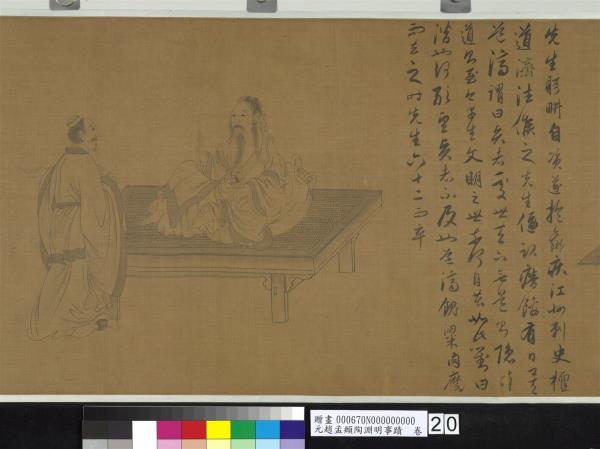 先生躬耕自資遂抱羸疾江州刺史檀
道濟往候之先生偃臥瘠餒有日矣
道濟謂曰賢者處世天下無道則隱有
道則至今子生文明之世奈何自苦如此對曰
潛也何敢望賢志不及也道濟餽粱肉麾
而去之時先生六十二而卒
贈畫 000670N000000000
元趙孟頫陶淵明事蹟 卷
20